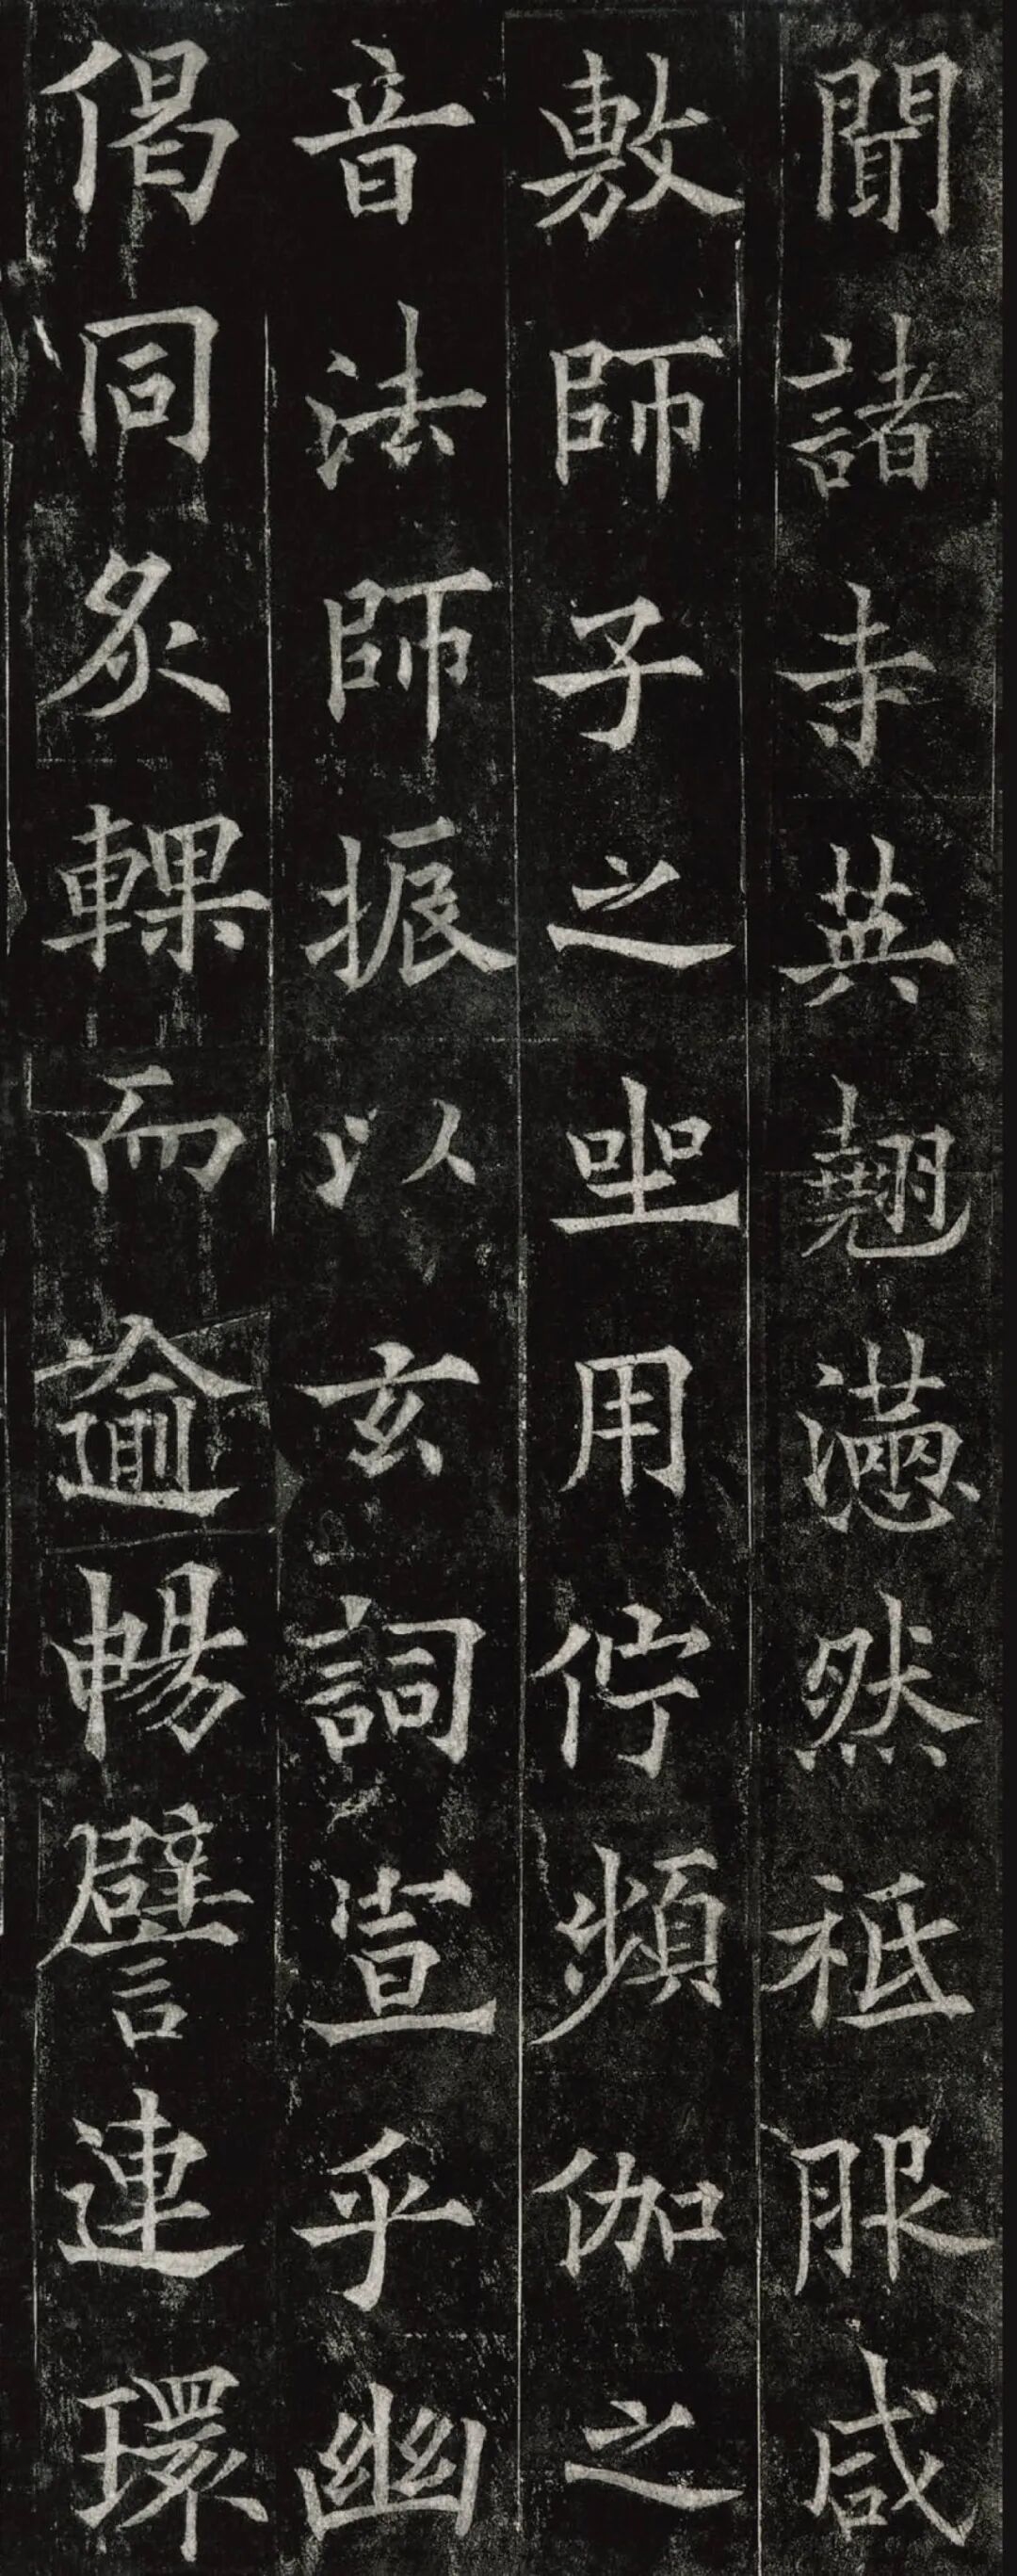 聞諸寺英翹懣然祗服咸
敷師子之坐用佇頻伽之
音法師振以玄詞宣乎幽
偈同炙輠而逾暢譬連環